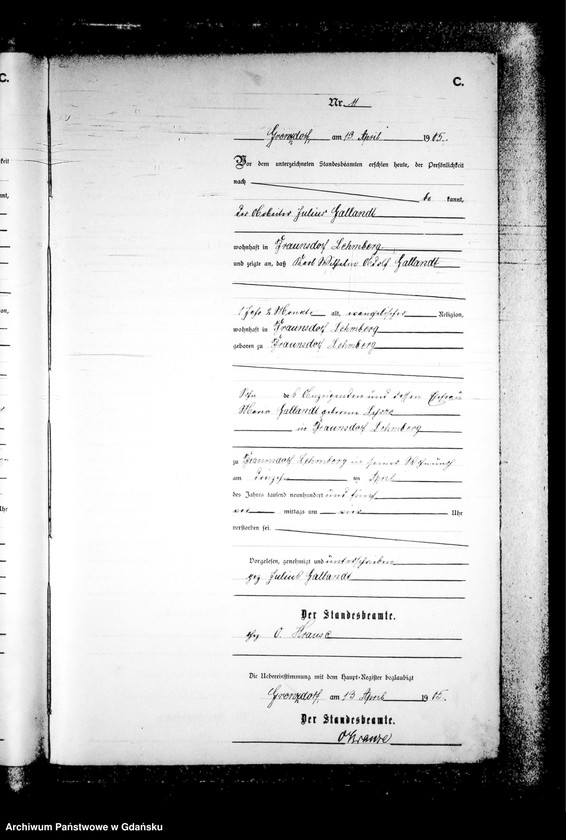 C.
Nr. 11
am 13 April 1905.
Vor dem unterzeichneten Standesbeamten erschien heute, der Persönlichkeit
nach
be kannt,
der Arbeiter Julius Gallandt
wohnhaft in Braunsdorf Lehmberg
und zeigte an, daß Karl Wilhelm Adolf Gallandt
1 Jahr 2 Monate alt, evangelischer Religion,
wohnhaft in Braunsdorf Lehmberg
geboren zu Braunsdorf Lehmberg
Sohn des Anzeigenden und dessen Ehefrau
Gallandt geborene
in Braunsdorf Lehmberg
zu Braunsdorf Lehmberg in seiner Wohnung
am April
des Jahres tausend neunhundert und fünf
mittags um Uhr
verstorben sei.
Vorgelesen, genehmigt und unterschrieben
gez Julius Gallandt
Der Standesbeamte.
gez O. Krause
Die Uebereinstimmung mit dem Haupt-Register beglaubigt
am 13 April 1905.
Der Standesbeamte.
O Krause
Archiwum Państwowe w Gdańsku